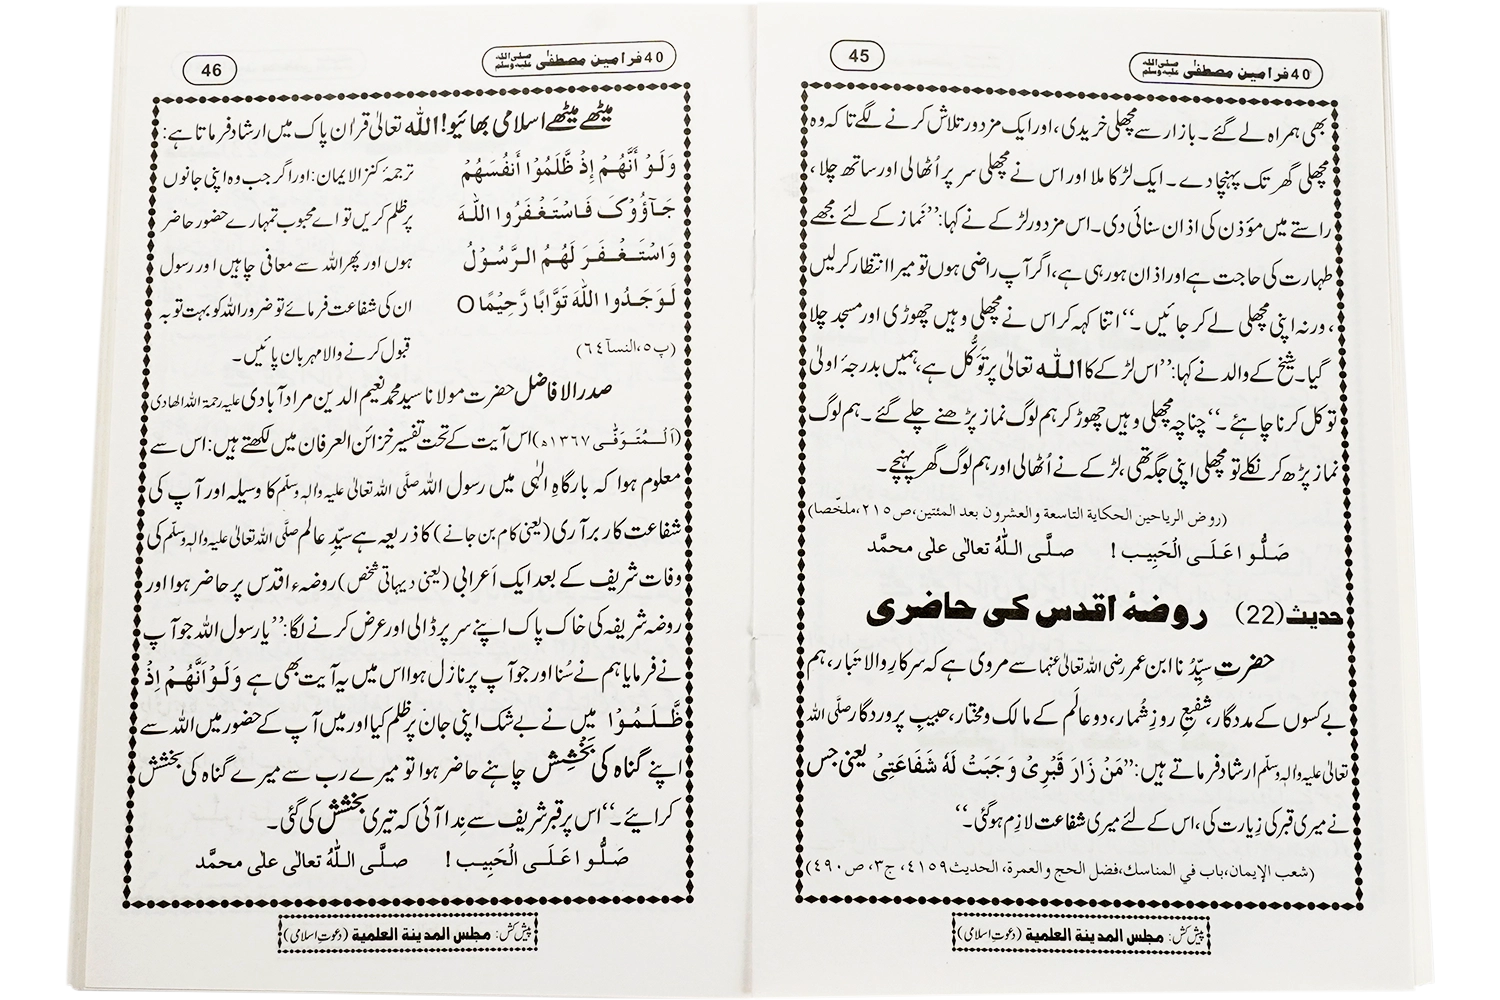 40 فرامین مصطفٰی صلی اللہ علیہ وسلم
45
بھی ہمراہ لے گئے۔ بازار سے مچھلی خریدی، اور ایک مزدور تلاش کرنے لگے تاکہ وہ
مچھلی گھر تک پہنچا دے۔ ایک لڑکا ملا اور اس نے مچھلی سر پر اُٹھالی اور ساتھ چلا،
راستے میں مؤذن کی اذان سنائی دی۔ اس مزدور لڑکے نے کہا: ”نماز کے لئے مجھے
طہارت کی حاجت ہے اور اذان ہو رہی ہے، اگر آپ راضی ہوں تو میرا انتظار کر لیں
، ورنہ اپنی مچھلی لے کر جائیں۔“ اتنا کہہ کر اس نے مچھلی وہیں چھوڑی اور مسجد چلا
گیا۔ شیخ کے والد نے کہا: ”اس لڑکے کا اللہ تعالٰی پر توکُّل ہے، ہمیں بدرجۂ اولٰی
توکل کرنا چاہئے۔“ چناچہ مچھلی وہیں چھوڑ کر ہم لوگ نماز پڑھنے چلے گئے۔ ہم لوگ
نماز پڑھ کر نکلے تو مچھلی اپنی جگہ تھی، لڑکے نے اُٹھالی اور ہم لوگ گھر پہنچے۔
(روض الریاحین الحکایة التاسعة والعشرون بعد المئتین، ص ۲۱۵، ملخّصا)
صَلُّوا عَلَی الْحَبِیب ! صلَّی اللّٰهُ تعالٰی علٰی محمَّد
حدیث (22) روضۂ اقدس کی حاضری
حضرت سیِّدُنا ابن عمر رضی اللہ تعالٰی عنہما سے مروی ہے کہ سرکارِ والا تَبار، ہم
بے کسوں کے مددگار، شفیعِ روزِ شُمار، دو عالَم کے مالک و مختار، حبیبِ پروردگار صلَّی اللہ
تعالٰی علیہ والہٖ وسلم ارشاد فرماتے ہیں: ”مَنْ زَارَ قَبْرِیْ وَجَبَتْ لَهٗ شَفَاعَتِیْ یعنی جس
نے میری قبر کی زِیارت کی، اس کے لئے میری شفاعت لازِم ہوگئی۔“
(شعب الإیمان، باب في المناسك، فضل الحج والعمرة، الحدیث ٤١٥٩، ج٣، ص٤٩٠)
پیش کش: مجلس المدینة العلمیة (دعوتِ اسلامی)
40 فرامین مصطفٰی صلی اللہ علیہ وسلم
46
میٹھے میٹھے اسلامی بھائیو! اللّٰہ تعالٰی قرانِ پاک میں ارشاد فرماتا ہے:
وَلَوْ أَنَّهُمْ إِذْ ظَّلَمُوْا أَنْفُسَهُمْ
جَآؤُوْكَ فَاسْتَغْفَرُوا اللّٰهَ
وَاسْتَغْفَرَ لَهُمُ الرَّسُوْلُ
لَوَجَدُوا اللّٰهَ تَوَّابًا رَّحِیْمًا
(پ٥، النسآ ٦٤)
ترجمۂ کنز الایمان: اور اگر جب وہ اپنی جانوں
پر ظلم کریں تو اے محبوب تمہارے حضور حاضر
ہوں اور پھر اللہ سے معافی چاہیں اور رسول
ان کی شفاعت فرمائے تو ضرور اللہ کو بہت توبہ
قبول کرنے والا مہربان پائیں۔
صدر الافاضل حضرت مولانا سید محمد نعیم الدین مراد آبادی علیہ رحمۃ اللہ الھادی
(اَلْمُتَوَفّٰی ١٣٦٧ھ) اس آیت کے تحت تفسیر خزائن العرفان میں لکھتے ہیں: اس سے
معلوم ہوا کہ بارگاہِ الٰہی میں رسول اللہ صلَّی اللہ تعالٰی علیہ والہٖ وسلَّم کا وسیلہ اور آپ کی
شفاعت کاربرآری (یعنی کام بن جانے) کا ذریعہ ہے سیِّدِ عالم صلَّی اللہ تعالٰی علیہ والہٖ وسلَّم کی
وفات شریف کے بعد ایک اَعرابی (یعنی دیہاتی شخص) روضہء اقدس پر حاضر ہوا اور
روضہ شریفہ کی خاک پاک اپنے سر پر ڈالی اور عرض کرنے لگا: ”یا رسول اللہ جو آپ
نے فرمایا ہم نے سُنا اور جو آپ پر نازل ہوا اس میں یہ آیت بھی ہے وَلَوْ اَنَّهُمْ اِذْ
ظَّلَمُوْا میں نے بے شک اپنی جان پر ظلم کیا اور میں آپ کے حضور میں اللہ سے
اپنے گناہ کی بَخْشِش چاہنے حاضر ہوا تو میرے رب سے میرے گناہ کی بخشش
کرائیے۔“ اس پر قبر شریف سے نِدا آئی کہ تیری بخشش کی گئی۔
صَلُّوا عَلَی الْحَبِیب ! صلَّی اللّٰهُ تعالٰی علٰی محمَّد
پیش کش: مجلس المدینة العلمیة (دعوتِ اسلامی)